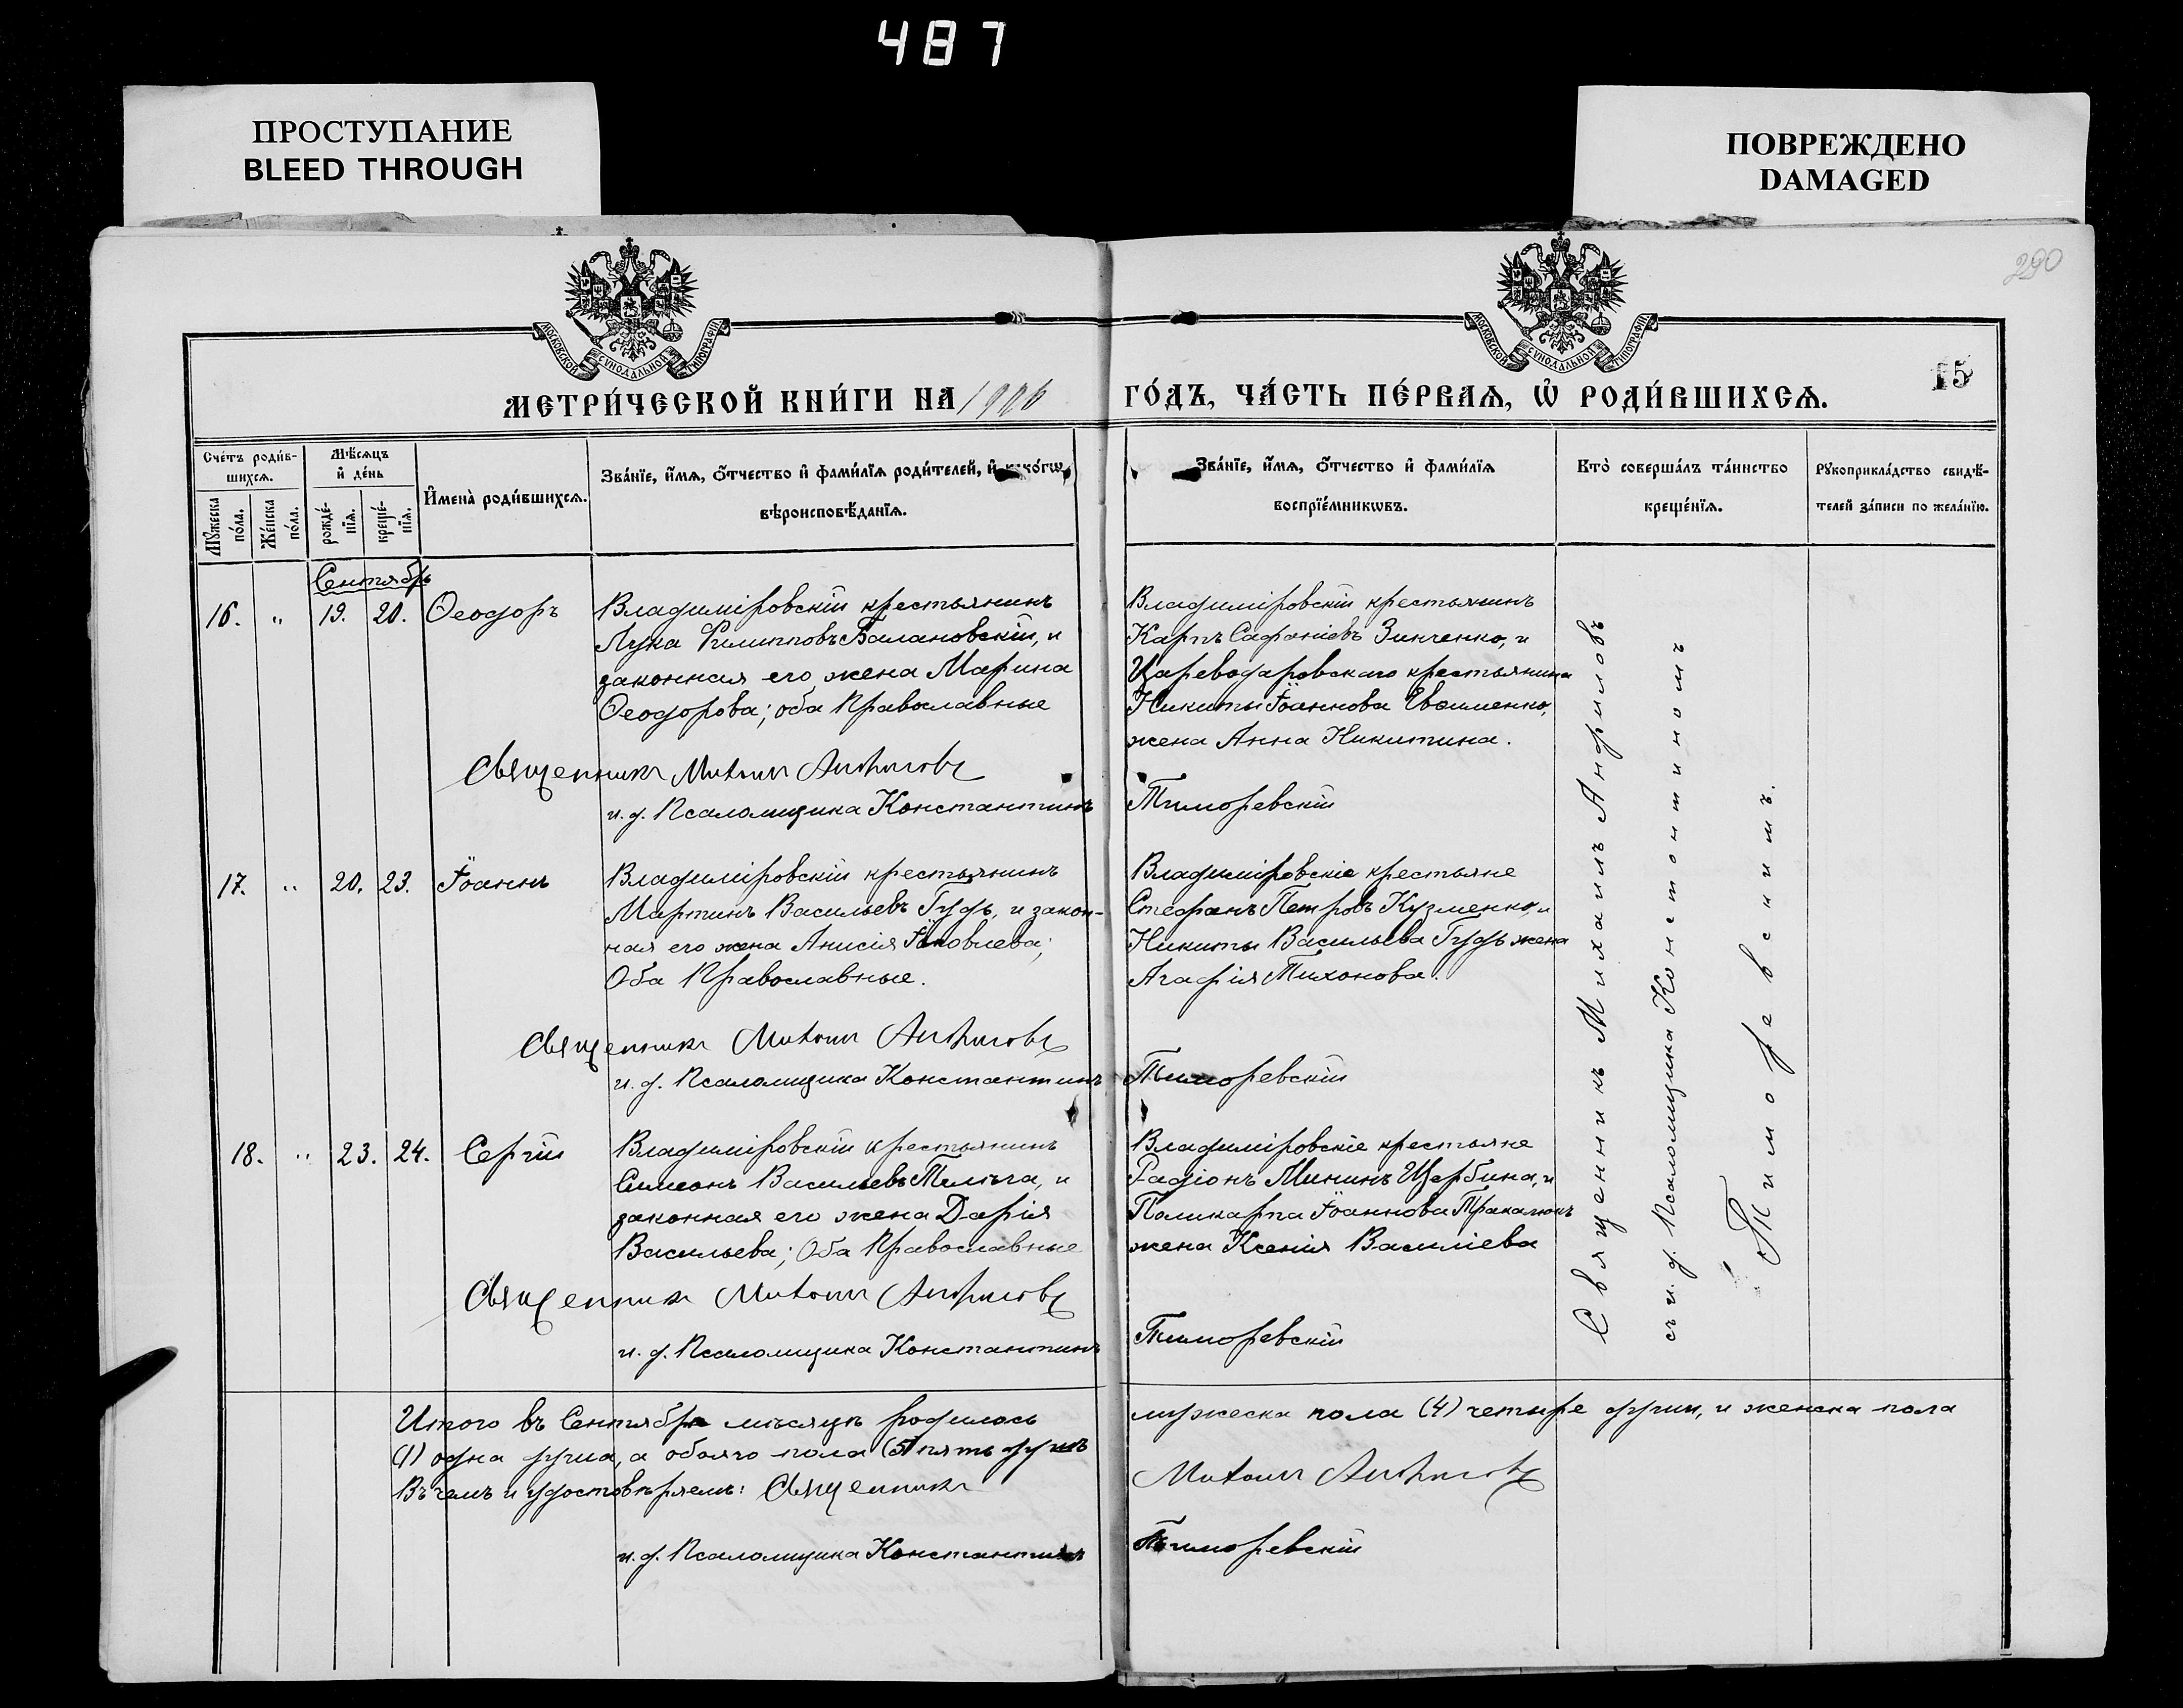 487
ПРОСТУПАНИЕ
BLEED THROUGH
ПОВРЕЖДЕНО
DAMAGED
290
МОСКОВСКОЙ СѴНОДАЛЬНОЙ ТИПОГРАФІИ
МОСКОВСКОЙ СѴНОДАЛЬНОЙ ТИПОГРАФІИ
15
МЕТРИ́ЧЕСКОЙ КНИ́ГИ НА 1906 ГО́ДЪ, ЧА́СТЬ ПЕ́РВАѦ, Ѡ҆ РОДИ́ВШИХСѦ.
Сче́тъ роди́в-
шихсѧ.
Мꙋ́жеска по́ла.
Же́нска по́ла.
Мѣ́сѧцъ
и҆ де́нь
рожде́-
нїѧ.
креще́-
нїѧ.
И҆мена̀ роди́вшихсѧ.
Зва́нїе, и҆́мѧ, ѻ҆́тчество и҆ фами́лїѧ роди́телей, и҆ како́гѡ
вѣроисповѣ́данїѧ.
Зва́нїе, и҆́мѧ, ѻ҆́тчество и҆ фами́лїѧ
воспрїе́мникѡвъ.
Кто̀ соверша́лъ та́инство
креще́нїѧ.
Рꙋкоприкла́дство свидѣ́-
телей за́писи по жела́нїю.
Сентябрь
16. " 19. 20. Ѳеодоръ
Владиміровскій крестьянинъ
Лука Филипповъ Балановскій, и
законная его жена Марина
Ѳеодорова; оба Православные
Владиміровскій крестьянинъ
Карпъ Сафоніевъ Зинченко, и
Цареводаровскаго крестьянина
Никиты Іоаннова Евсименко,
жена Анна Никитина.
Священникъ Михаилъ Анфиловъ
и. д. Псаломщика Константинъ Тиморевскій
17. " 20. 23. Іоаннъ
Владиміровскій крестьянинъ
Мартинъ Васильевъ Гудь, и закон-
ная его жена Анисія Іаковлева;
Оба Православные.
Владиміровскіе крестьяне
Стефанъ Петровъ Кузменко, и
Никиты Васильева Гудь жена
Агафія Тихонова.
Священникъ Михаилъ Анфиловъ
и. д. Псаломщика Константинъ Тиморевскій
18. " 23. 24. Сергій
Владиміровскій крестьянинъ
Симеонъ Васильевъ Телѣга, и
законная его жена Дарія
Васильева; Оба Православные
Владиміровскіе крестьяне
Радіонъ Мининъ Щербина, и
Поликарпа Іоаннова
жена Ксенія Василіева
Священникъ Михаилъ Анфиловъ
и. д. Псаломщика Константинъ Тиморевскій
Священникъ Михаилъ Анфиловъ
съ и. д. Псаломщика Константиномъ
Тиморевскимъ.
Итого въ Сентябрѣ мѣсяцѣ родилось мужеска пола (4) четыре души, и женска пола
(1) одна душа, а обоего пола (5) пять душъ
Въ чемъ и удостовѣряемъ: Священникъ Михаилъ Анфиловъ
и. д. Псаломщика Константинъ Тиморевскій